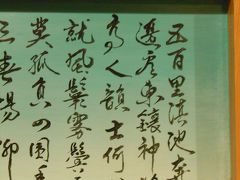 五百里滇池奔
邊看東驤神
高人韻士何
就風鬟霧鬢
莫孤負四圍
三春楊柳